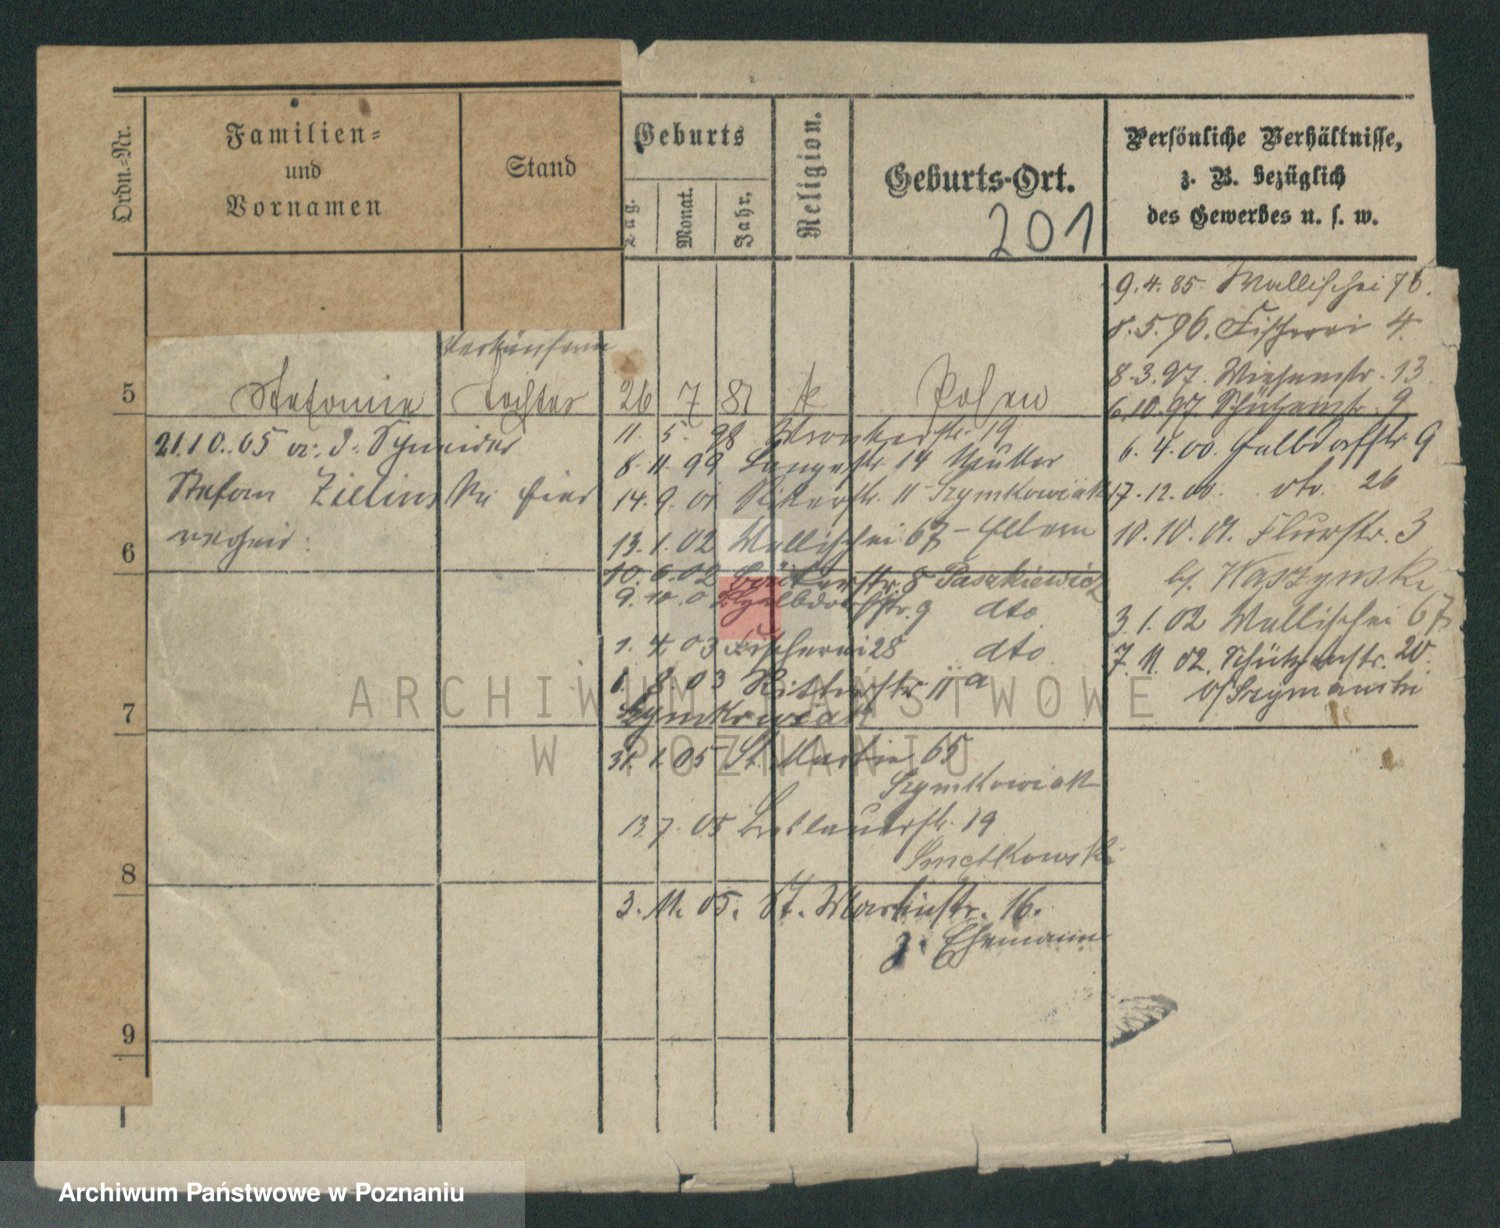 Ordn.-Nr.
Familien-
und
Vornamen
Stand
Geburts
Tag.
Monat.
Jahr.
Religion.
Geburts-Ort.
201
Persönliche Verhältnisse,
z. B. bezüglich
des Gewerbes u. s. w.
9.4.85. Wallischei 76.
8.5.96. Fischerei 4.
8.3.97. Wiesenstr. 13
6.10.97 Schützenstr. 9
6.4.00. Halbdorfstr 9
17.12.00. dto. 26
10.10.01. Flurstr. 3
b/ Kaszynski
3.1.02 Wallischei 67
7.11.02. Schützenstr. 20.
b/ Szymanski
Verkäuferin
5
Stefanie Tochter 26 7 81 k Posen
21.10.05 Schneider
Stefan Zielinski hier
11.5.98 Wronkerstr. 19
8.11.99 Langestr. 14 Mutter
14.9.01 Ritterstr. 11 Szymkowiak
13.1.02 Wallischei 67 - Eltern
6
10.6.02 8 Paszkiewicz
9.10.02 Halbdorfstr. 9 dto
1.4.03 Fischerei 28 dto
1.8.03 Ritterstr. 11a
Szymkowiak
7
31.1.05 St. Martin 65
Szymkowiak
13.7.05 Breslauerstr. 19
Smetkowski
8
3.11.05. St. Martinstr. 16.
z. Ehemann
9
ARCHIWUM PAŃSTWOWE
W POZNANIU
Archiwum Państwowe w Poznaniu